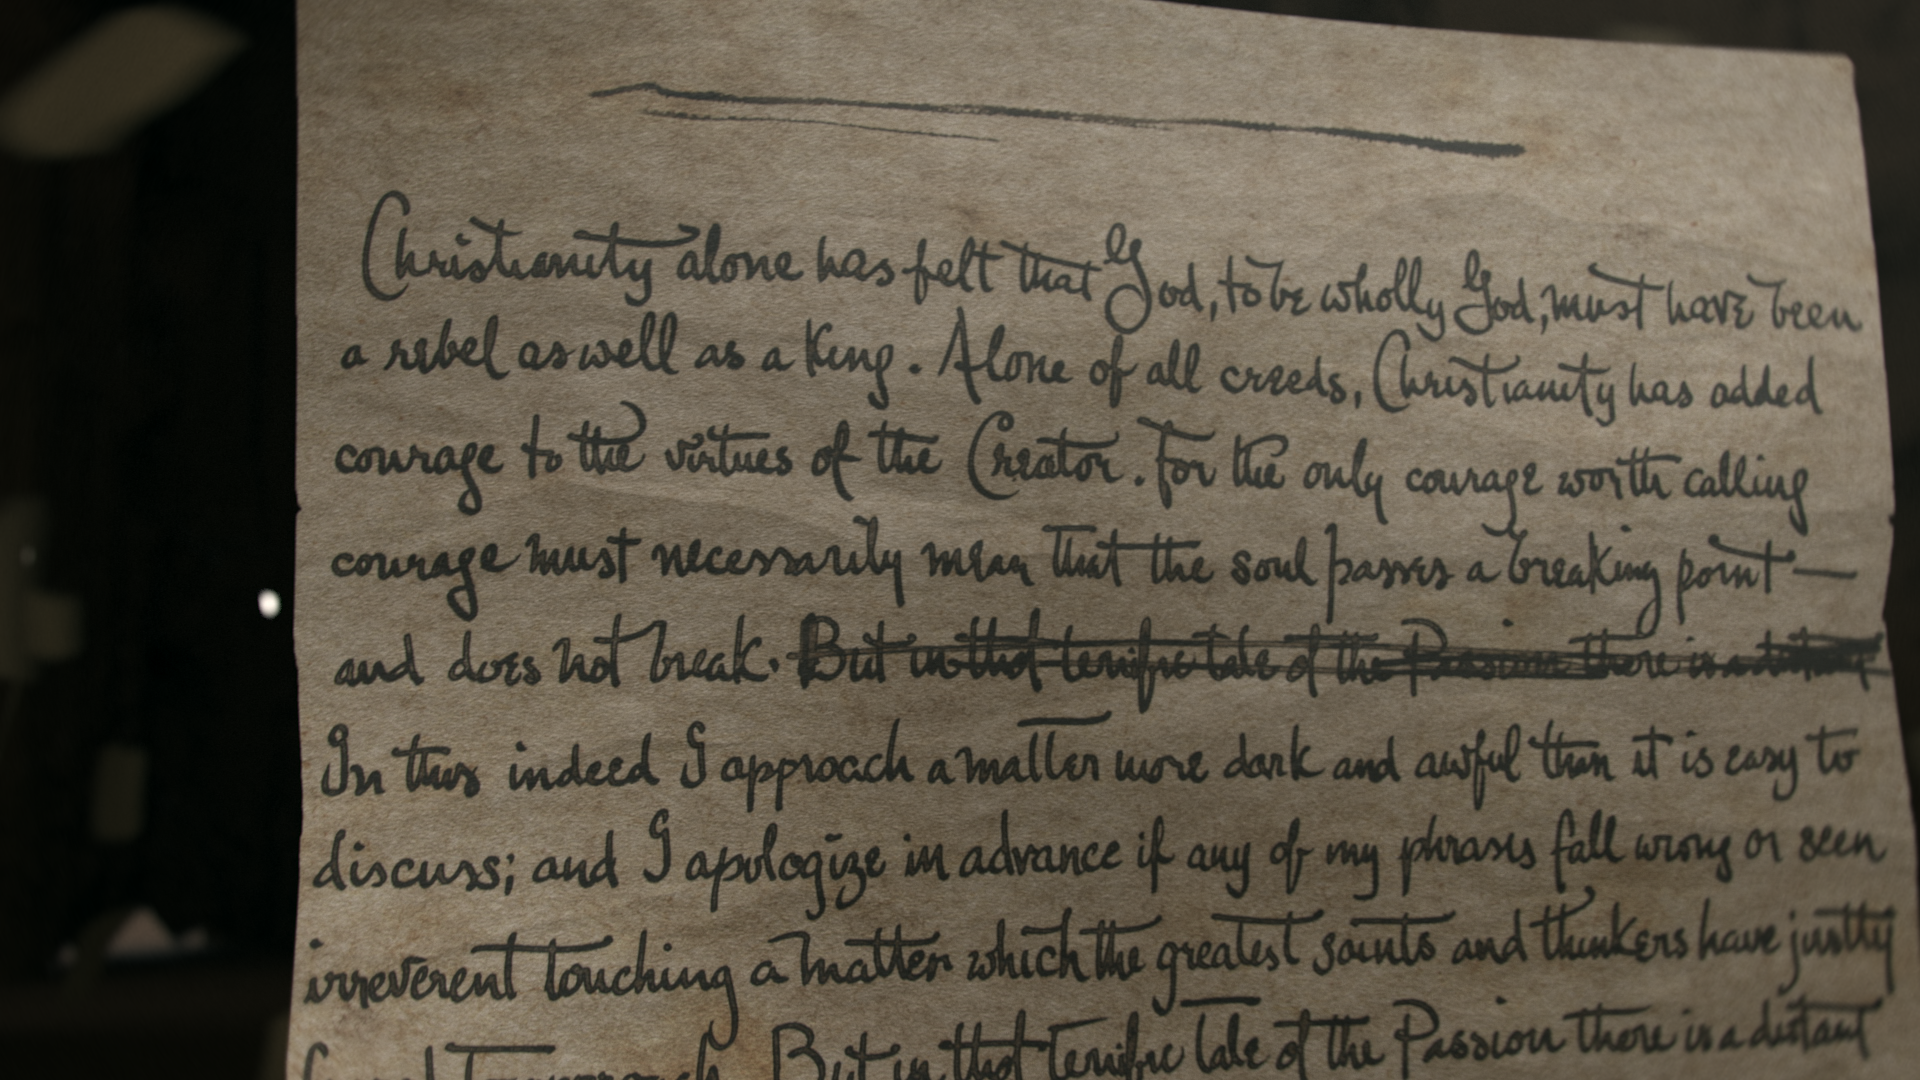 Christianity alone has felt that God, to be wholly God, must have been
a rebel as well as a king. Alone of all creeds, Christianity has added
courage to the virtues of the Creator. For the only courage worth calling
courage must necessarily mean that the soul passes a breaking point—
and does not break. But in that terrific tale of the Passion there is a distant
In this indeed I approach a matter more dark and awful than it is easy to
discuss; and I apologize in advance if any of my phrases fall wrong or seem
irreverent touching a matter which the greatest saints and thinkers have justly
But in that terrific tale of the Passion there is a distant